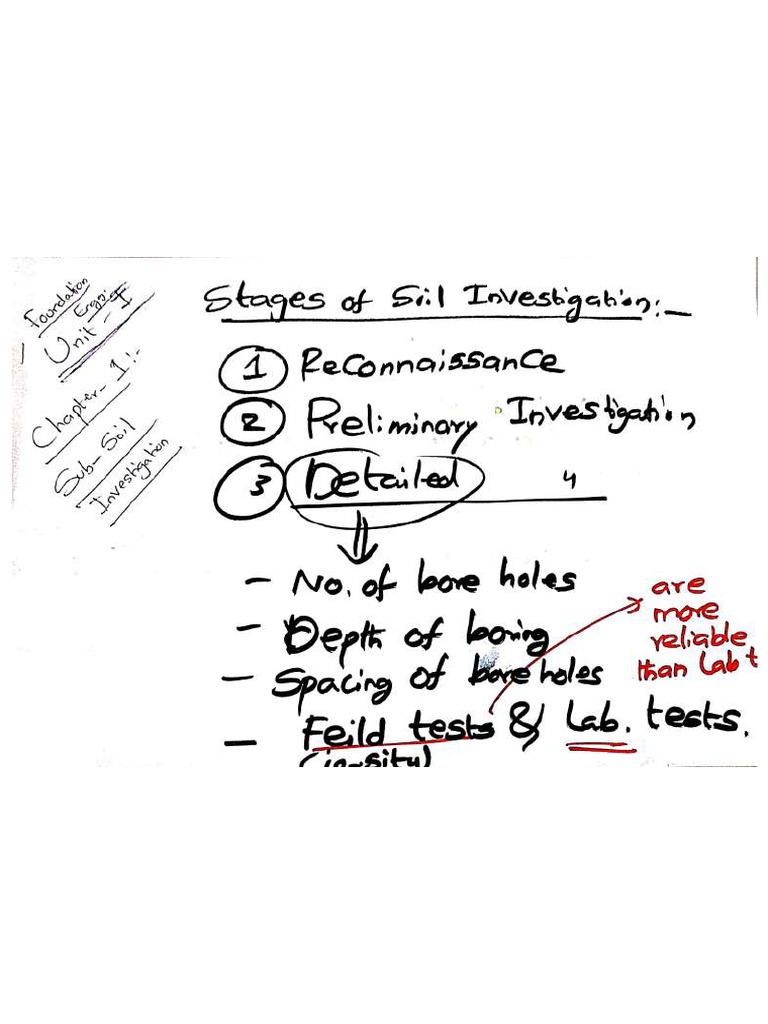 Foundation
Engg:
Unit-I
Chapter-1:-
Sub-Soil
Investigation
Stages of Soil Investigation:-
1 Reconnaissance
2 Preliminary Investigation
3 Detailed "
- No. of bore holes
- Depth of boring
- Spacing of bore holes
- Feild tests & Lab. tests.
(in-situ)
are
more
reliable
than Lab t